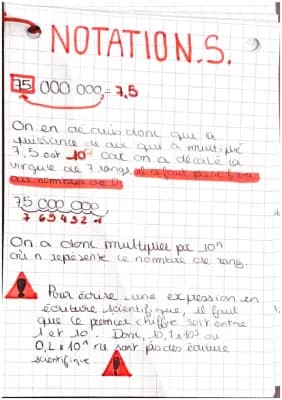 NOTATION.S.
75 000 000 = 7,5
On en déduis donc que la
puissance de dix qui a multiplié
7,5 est 10 car on a décalé la
virgule de 7 rangs, il faut pas se fier
au nombre de 0.
75 000 000
7 6 5 4 3 2 1
On a donc multiplier par 10ⁿ
où n représente le nombre de rang.
Pour écrire une expression en
écriture scientifique, il faut
que le premier chiffre soit entre
1 et 10. Donc, 10,1 x 10² ou
0,2 x 10¹ ne sont pas des écriture
scientifique.